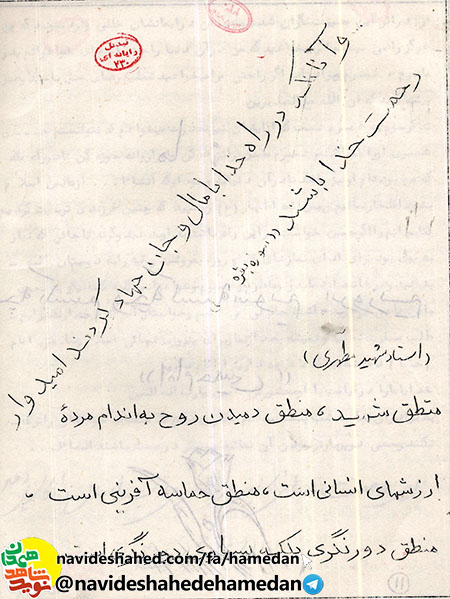 رایانه ای
۷۳۰
و آنانکه در راه خدا با مال و جان جهاد کردند امیدوار
رحمت خدا باشند «سوره بقره»
(استاد شهید مطهری)
منطق شهید، منطق دمیدن روح به اندام مردهٔ
ارزشهای انسانی است، منطق حماسه آفرینی است.
منطق دورنگری بلکه بسیار دورنگری است
navideshahed.com/fa/hamedan
@navideshahedehamedan
نوید شاهد
همدان
(۱۱)